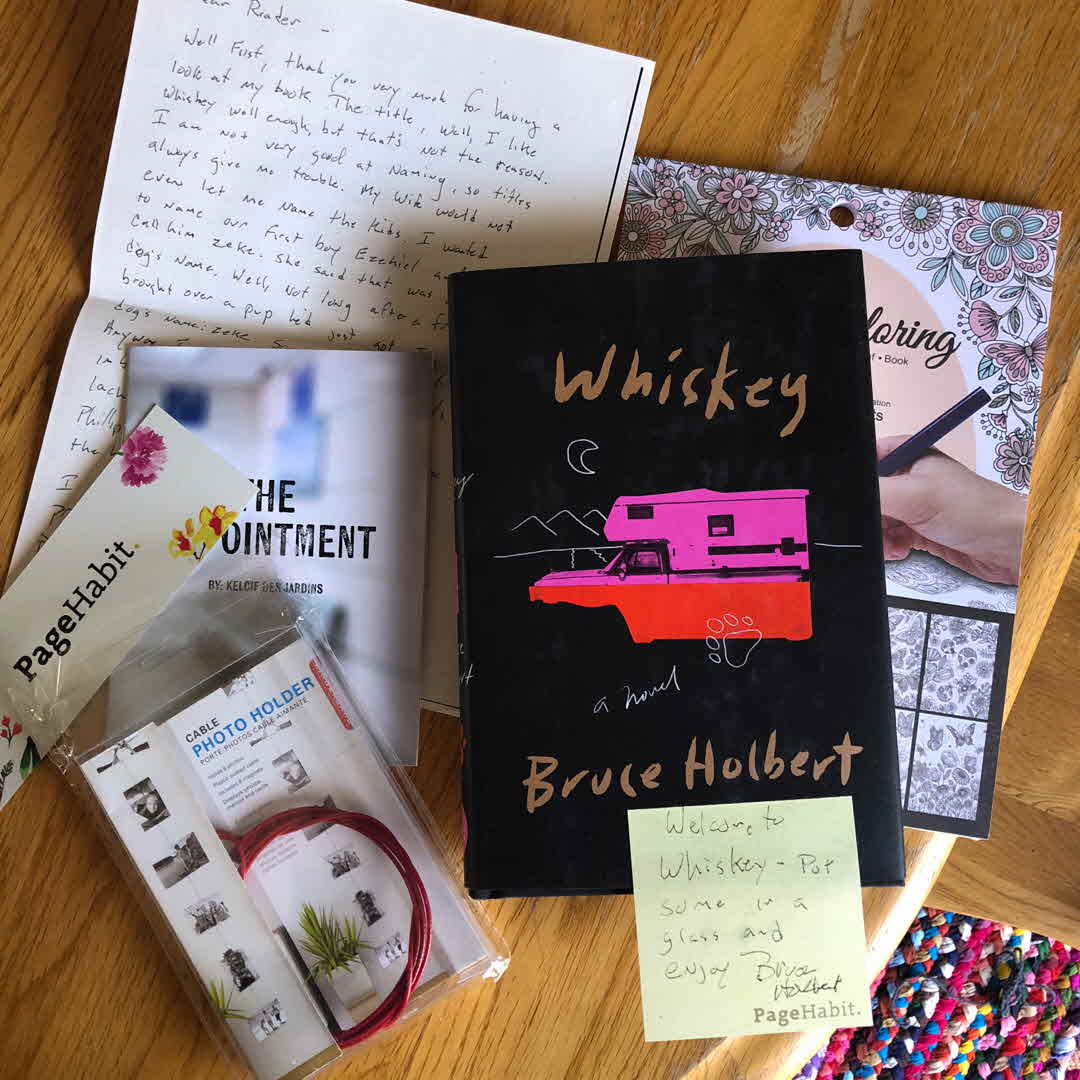 ear Reader -
Well First, thank you very much for having a
look at my book. The title, well, I like
whiskey well enough, but that's not the reason.
I am not very good at Naming, so titles
always give me trouble. My wife would not
even let me name the kids. I wanted
to name our first boy Ezekiel
call him Zeke. She said that was
dog's name. Well, not long after a
brought over a pup he'd just got
dog's name: Zeke.
Anyway
lack
Phillip
the
I
THE
OINTMENT
BY: KELCIE DES JARDINS
PageHabit.
CABLE
PHOTO HOLDER
PORTE PHOTOS CABLE AIMANTE
Whiskey
a novel
Bruce Holbert
loring
Book
Welcome to
Whiskey - Put
some in a
glass and
enjoy Bruce
Holbert
PageHabit.